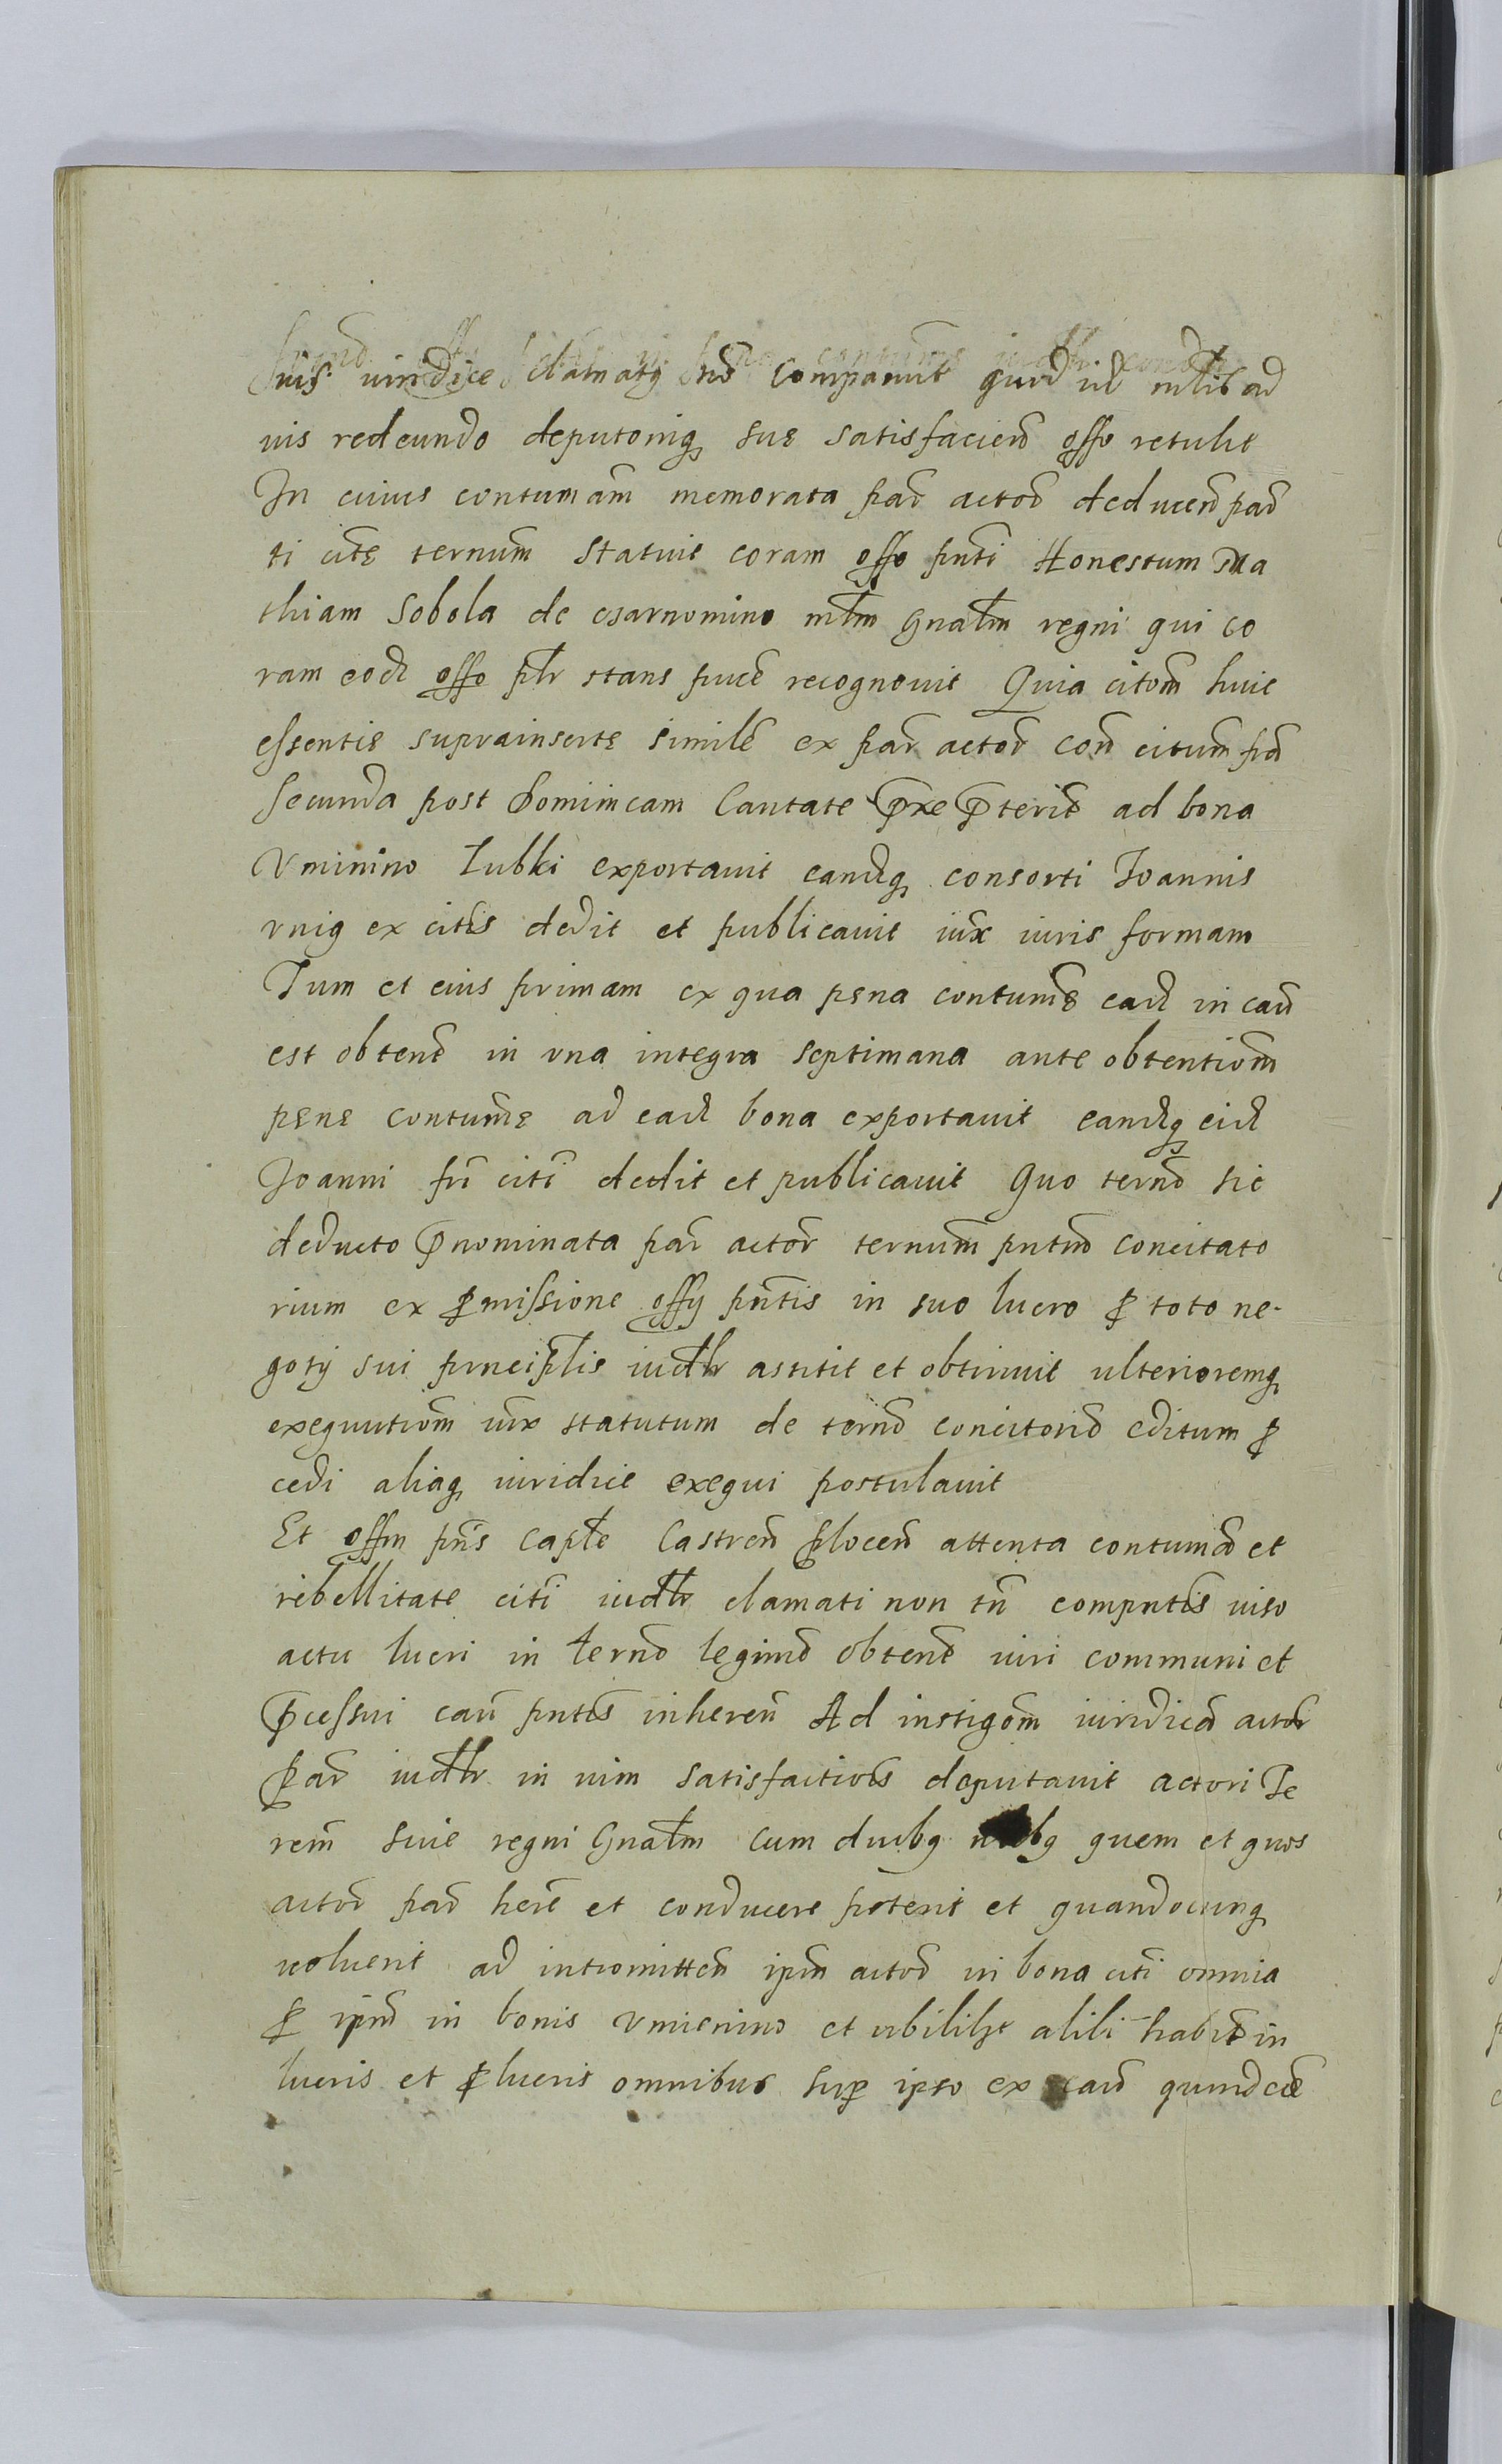 nis iuridice clamatus no͂ comparuit quod ul milit ad
uis redeundo deputoniq sue satisfacien̄ offo retulit
In cuius contumam̄ memorata par̄ actor̄ deducen̄ par
ti citē ternum̄ statuit coram offo pn̄ti Honestum Ma
thiam Sobola de czarnomino mlm̄ Gnalm̄ regni qui co
ram eod offo plr̄ stans puce recognouit Quia citom̄ huic
essentie suprainserte similē ex par̄ actor̄ con̄ citum fr̄a
secunda post Dominicam Cantate p̄xe p̄terite ad bona
Vminino Lubki exportauit eandq consorti Joannis
vnig ex citis dedit et publicauit iux̄ iuris formam
Tum et eius primam ex qua pena contum̄e ead in cau̅
est obtent̄ in vna integra septimana ante obtentiom̄
pene contum̄e ad ead bona exportauit eandq eid
Joanni fr̄i citi dedit et publicauit Quo tern̄o sic
deducto p̄nominata par̄ actor̄ ternum̄ pn̄tm̄ concitato
rium ex ꝑmissione offy pn̄tis in suo lucro ꝑ toto ne-
gotÿ sui prnciplis iudlr astitit et obtinuit ulterioremq
exequutiom̄ iux̄ statutum de tern̄o concitorio editum ꝑ
cedi aliaq iuridice exequi postulauit
Et offm pn̄s Caplē Castren̄ Plocen̄ attenta contumā et
rebellitate citi iudlr clamati non tn̄ compn̄tis uiso
actu lucri in tern̄o legimo obtent̄ iuri communi et
p̄cessui cau̅ pn̄tis inheren̄ Ad instigom̄ iuridicā actor̄
Par̄ iudlr in uim satisfactiois deputauit actori Te
rem̄ siue regni Gnalm̄ cum duobq quem et quos
actor̄ par̄ herē et conducere poterit et quandocunq
uoluerit ad intromitten̄ ipm̄ actor̄ in bona citi omnia
ꝑ ipm̄ in bonis Vmienino et ubilibz alili habit̄ in
lucris et ꝑlucris omnibus suꝑ ipso ex cau̅